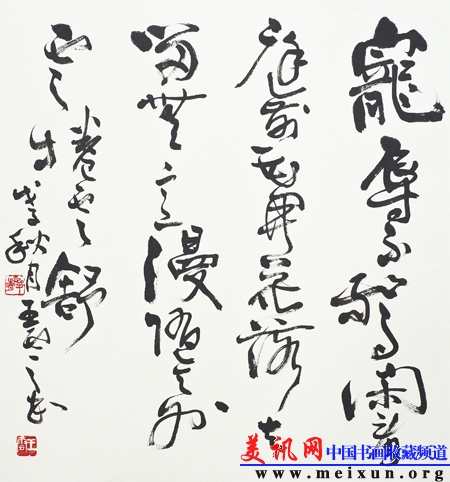 寵辱不驚闲看
庭前花開花落去
留無意漫随天外
雲卷雲舒
戊子秋月王
美讯网 中国书画收藏频道
www.meixun.org